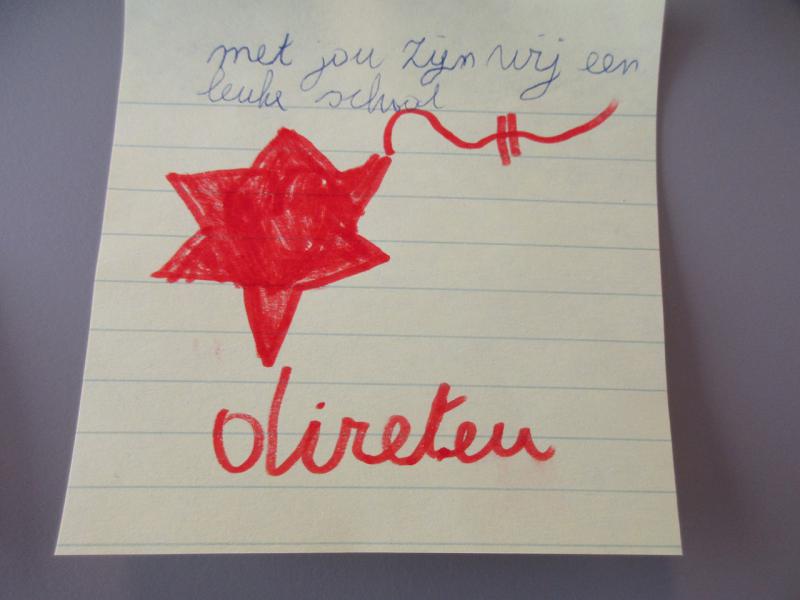 met jou zijn wij een
leuke school
direteu